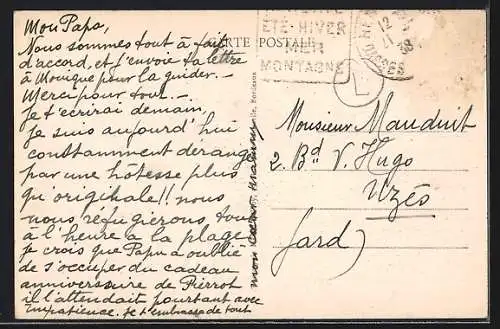 Mon Papa,
Nous sommes tout à fait
d'accord, et j'envoie ta lettre
à Monique pour la guider. —
Merci pour tout. —
Je t'écrirai demain,
je suis aujourd'hui
constamment dérangé
par une hôtesse plus
qu'originale!! nous
nous réfugierons tout
à l'heure à la plage
Je crois que Papu a oublié
de s'occuper du cadeau
anniversaire de Pierrot
il l'attendait pourtant avec
impatience. Je t'embrasse de tout
mon cœur,
CARTE POSTALE
ÉTÉ-HIVER
MER
MONTAGNE
12
38
L
Monsieur Mauduit
2. Bd V. Hugo
Uzès
Gard)